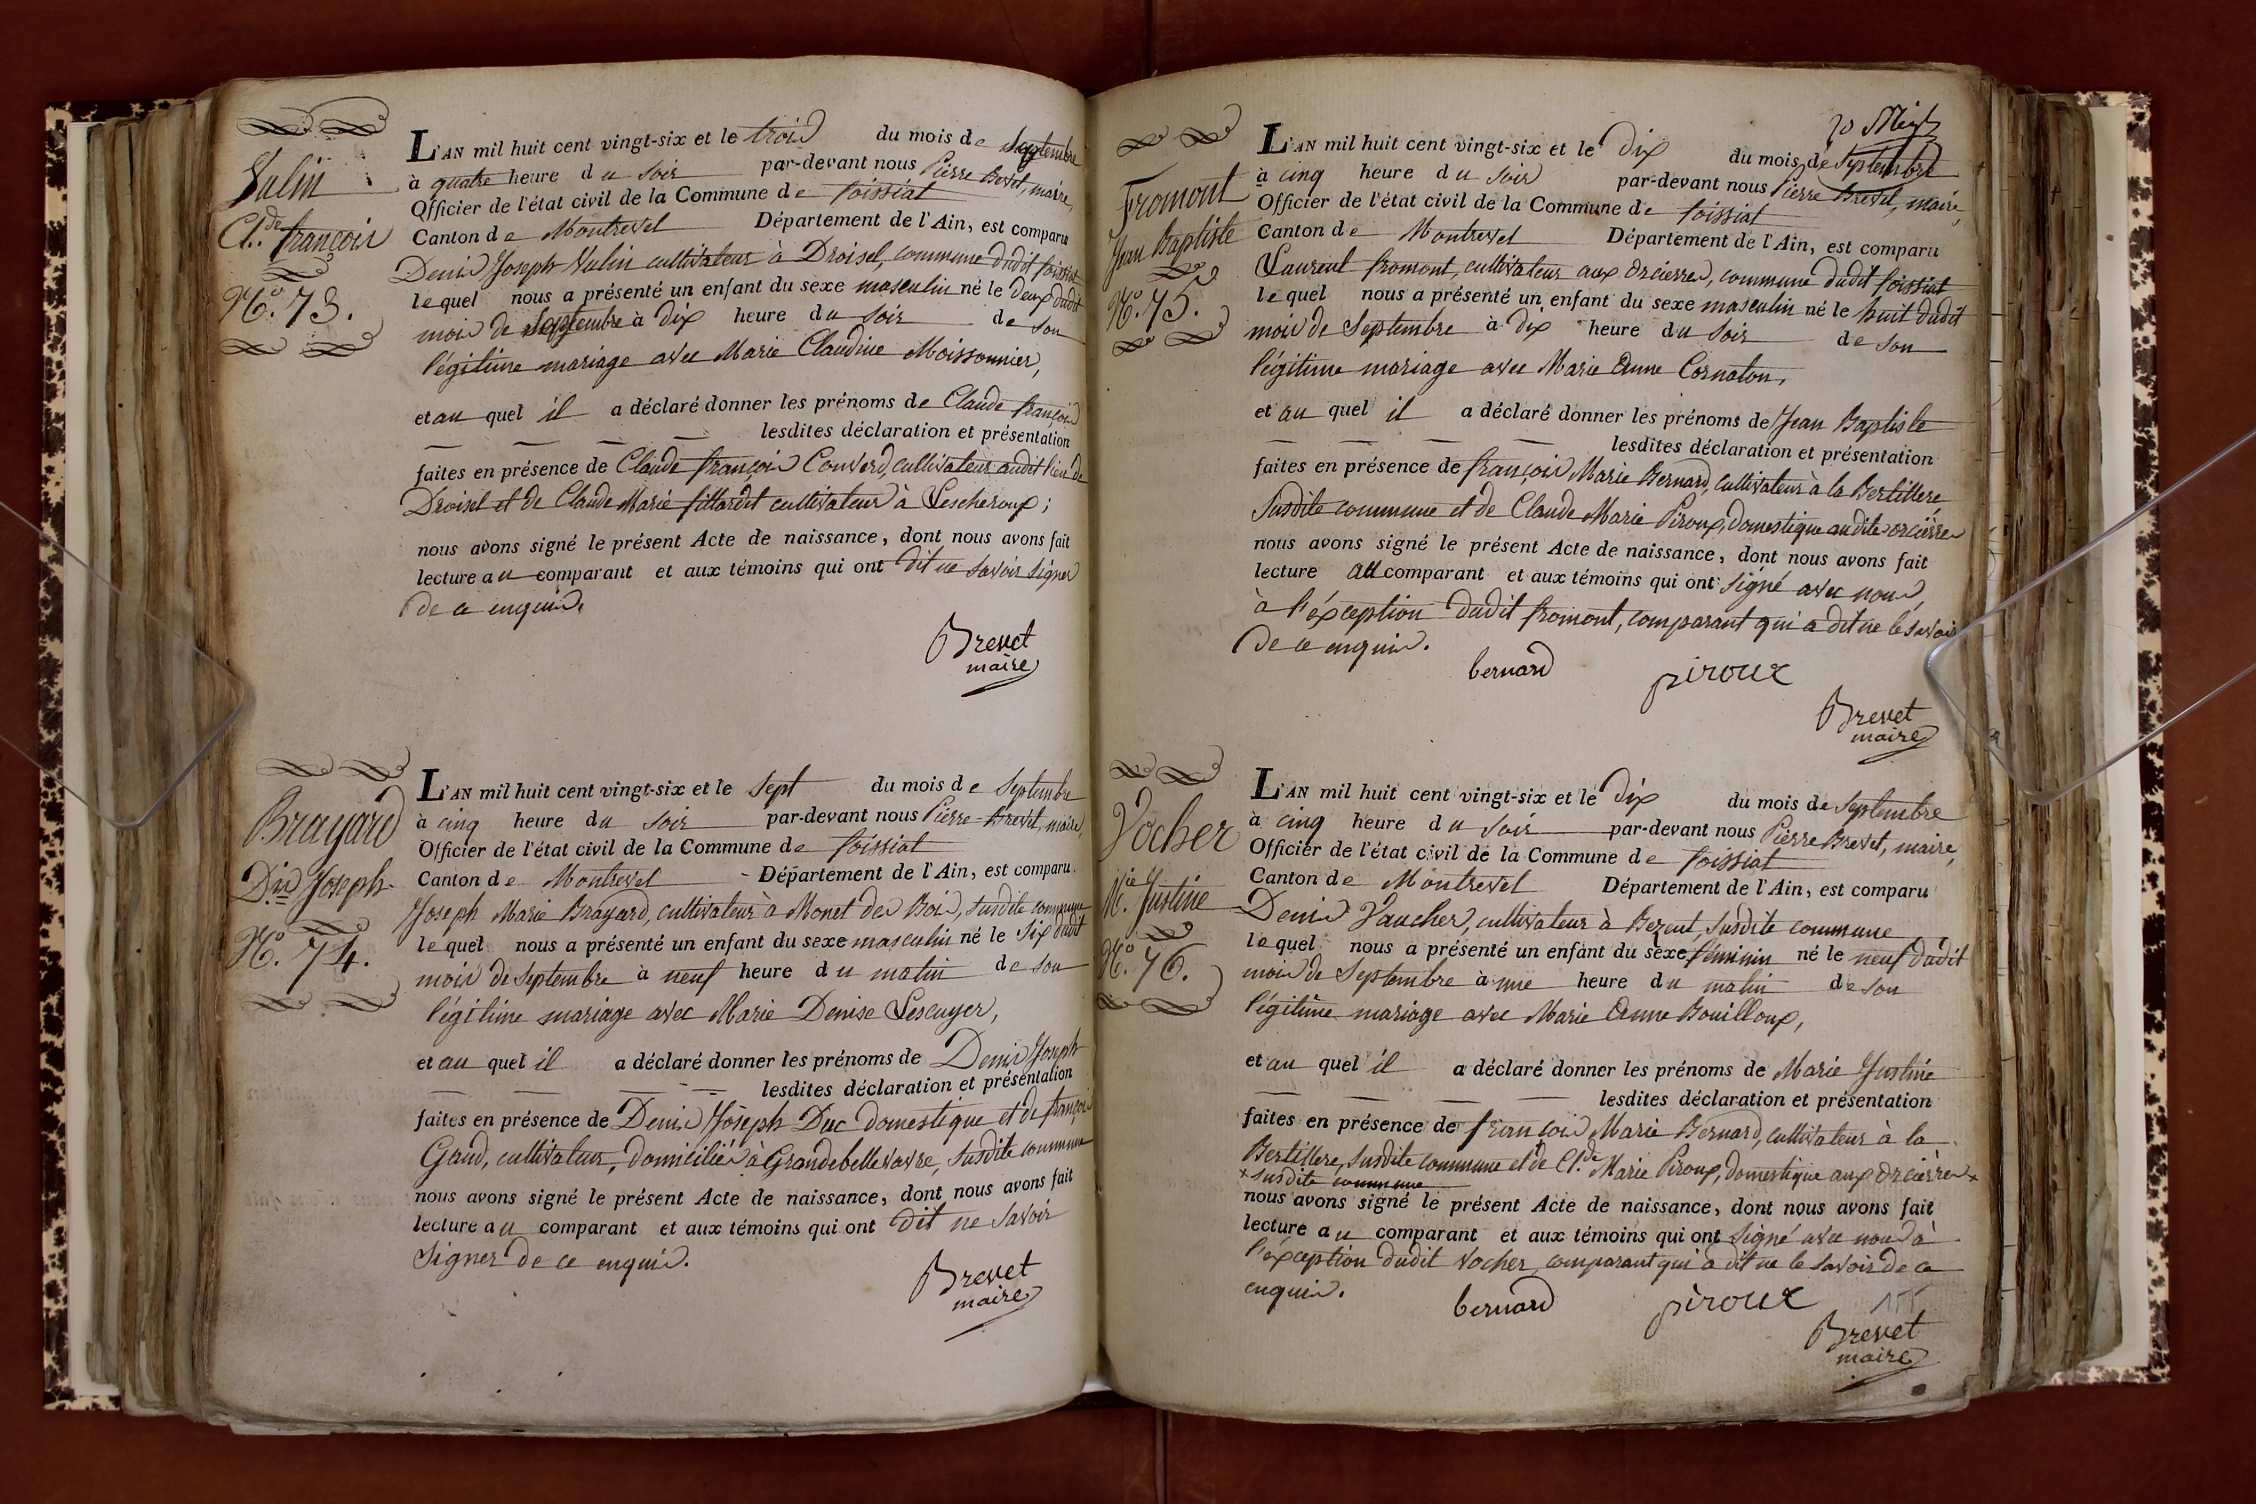 Vulin
Cl.de françois
N.o 73.
L'AN mil huit cent vingt-six et le trois du mois de Septembre
à quatre heure du soir par-devant nous Pierre Brevet, maire,
Officier de l'état civil de la Commune de foissiat
Canton de Montrevel Département de l'Ain, est comparu
Denis Joseph Vulin cultivateur à Droisel, commune dudit foissiat
lequel nous a présenté un enfant du sexe masculin né le deux dudit
mois de Septembre à dix heure du soir de son
légitime mariage avec Marie Claudine Moissonnier,
et au quel il a déclaré donner les prénoms de Claude françois
lesdites déclaration et présentation
faites en présence de Claude françois Convard, cultivateur audit lieu de
Droisel et de Claude Marie fillardet cultivateur à Lescheroux;
nous avons signé le présent Acte de naissance, dont nous avons fait
lecture au comparant et aux témoins qui ont dit ne savoir signer
de ce enquis.
Brevet
maire
Brayard
D.is Joseph
N.o 74.
L'AN mil huit cent vingt-six et le sept du mois de Septembre
à cinq heure du soir par-devant nous Pierre Brevet, maire,
Officier de l'état civil de la Commune de foissiat
Canton de Montrevel Département de l'Ain, est comparu
Joseph Marie Brayard, cultivateur à Monet des Bois, susdite commune
lequel nous a présenté un enfant du sexe masculin né le six dudit
mois de Septembre à neuf heure du matin de son
légitime mariage avec Marie Denise Lescuyer,
et au quel il a déclaré donner les prénoms de Denis Joseph
lesdites déclaration et présentation
faites en présence de Denis Joseph Duc domestique et de françois
Gaud, cultivateur, domiciliés à Grandebellevavre, susdite commune
nous avons signé le présent Acte de naissance, dont nous avons fait
lecture au comparant et aux témoins qui ont dit ne savoir
signer de ce enquis.
Brevet
maire
Fromont
Jean Baptiste
N.o 75.
L'AN mil huit cent vingt-six et le dix du mois de Septembre
à cinq heure du soir par-devant nous Pierre Brevet, maire,
Officier de l'état civil de la Commune de foissiat
Canton de Montrevel Département de l'Ain, est comparu
Laurent fromont, cultivateur aux orcierres, commune dudit foissiat
lequel nous a présenté un enfant du sexe masculin né le huit dudit
mois de Septembre à dix heure du soir de son
légitime mariage avec Marie Anne Cornaton,
et au quel il a déclaré donner les prénoms de Jean Baptiste
lesdites déclaration et présentation
faites en présence de françois Marie Bernard, cultivateur à la Bertillere,
susdite commune et de Claude Marie Piroux, domestique audite orcierres
nous avons signé le présent Acte de naissance, dont nous avons fait
lecture au comparant et aux témoins qui ont signé avec nous,
à l'éxception dudit fromont, comparant qui a dit ne le savoir
de ce enquis.
bernard piroux
Brevet
maire
Vocher
M.ie Justine
N.o 76.
L'AN mil huit cent vingt-six et le dix du mois de Septembre
à cinq heure du soir par-devant nous Pierre Brevet, maire,
Officier de l'état civil de la Commune de foissiat
Canton de Montrevel Département de l'Ain, est comparu
Denis Vaucher, cultivateur à Bezent, susdite commune
lequel nous a présenté un enfant du sexe féminin né le neuf dudit
mois de Septembre à une heure du matin de son
légitime mariage avec Marie Anne Bouilloux,
et au quel il a déclaré donner les prénoms de Marie Justine
lesdites déclaration et présentation
faites en présence de françois Marie Bernard, cultivateur à la
Bertillere, susdite commune et de Cl.de Marie Piroux, domestique aux orcierres x
x susdite commune
nous avons signé le présent Acte de naissance, dont nous avons fait
lecture au comparant et aux témoins qui ont signé avec nous à
l'éxception dudit Vocher, comparant qui a dit ne le savoir de ce
enquis.
bernard piroux
Brevet
maire